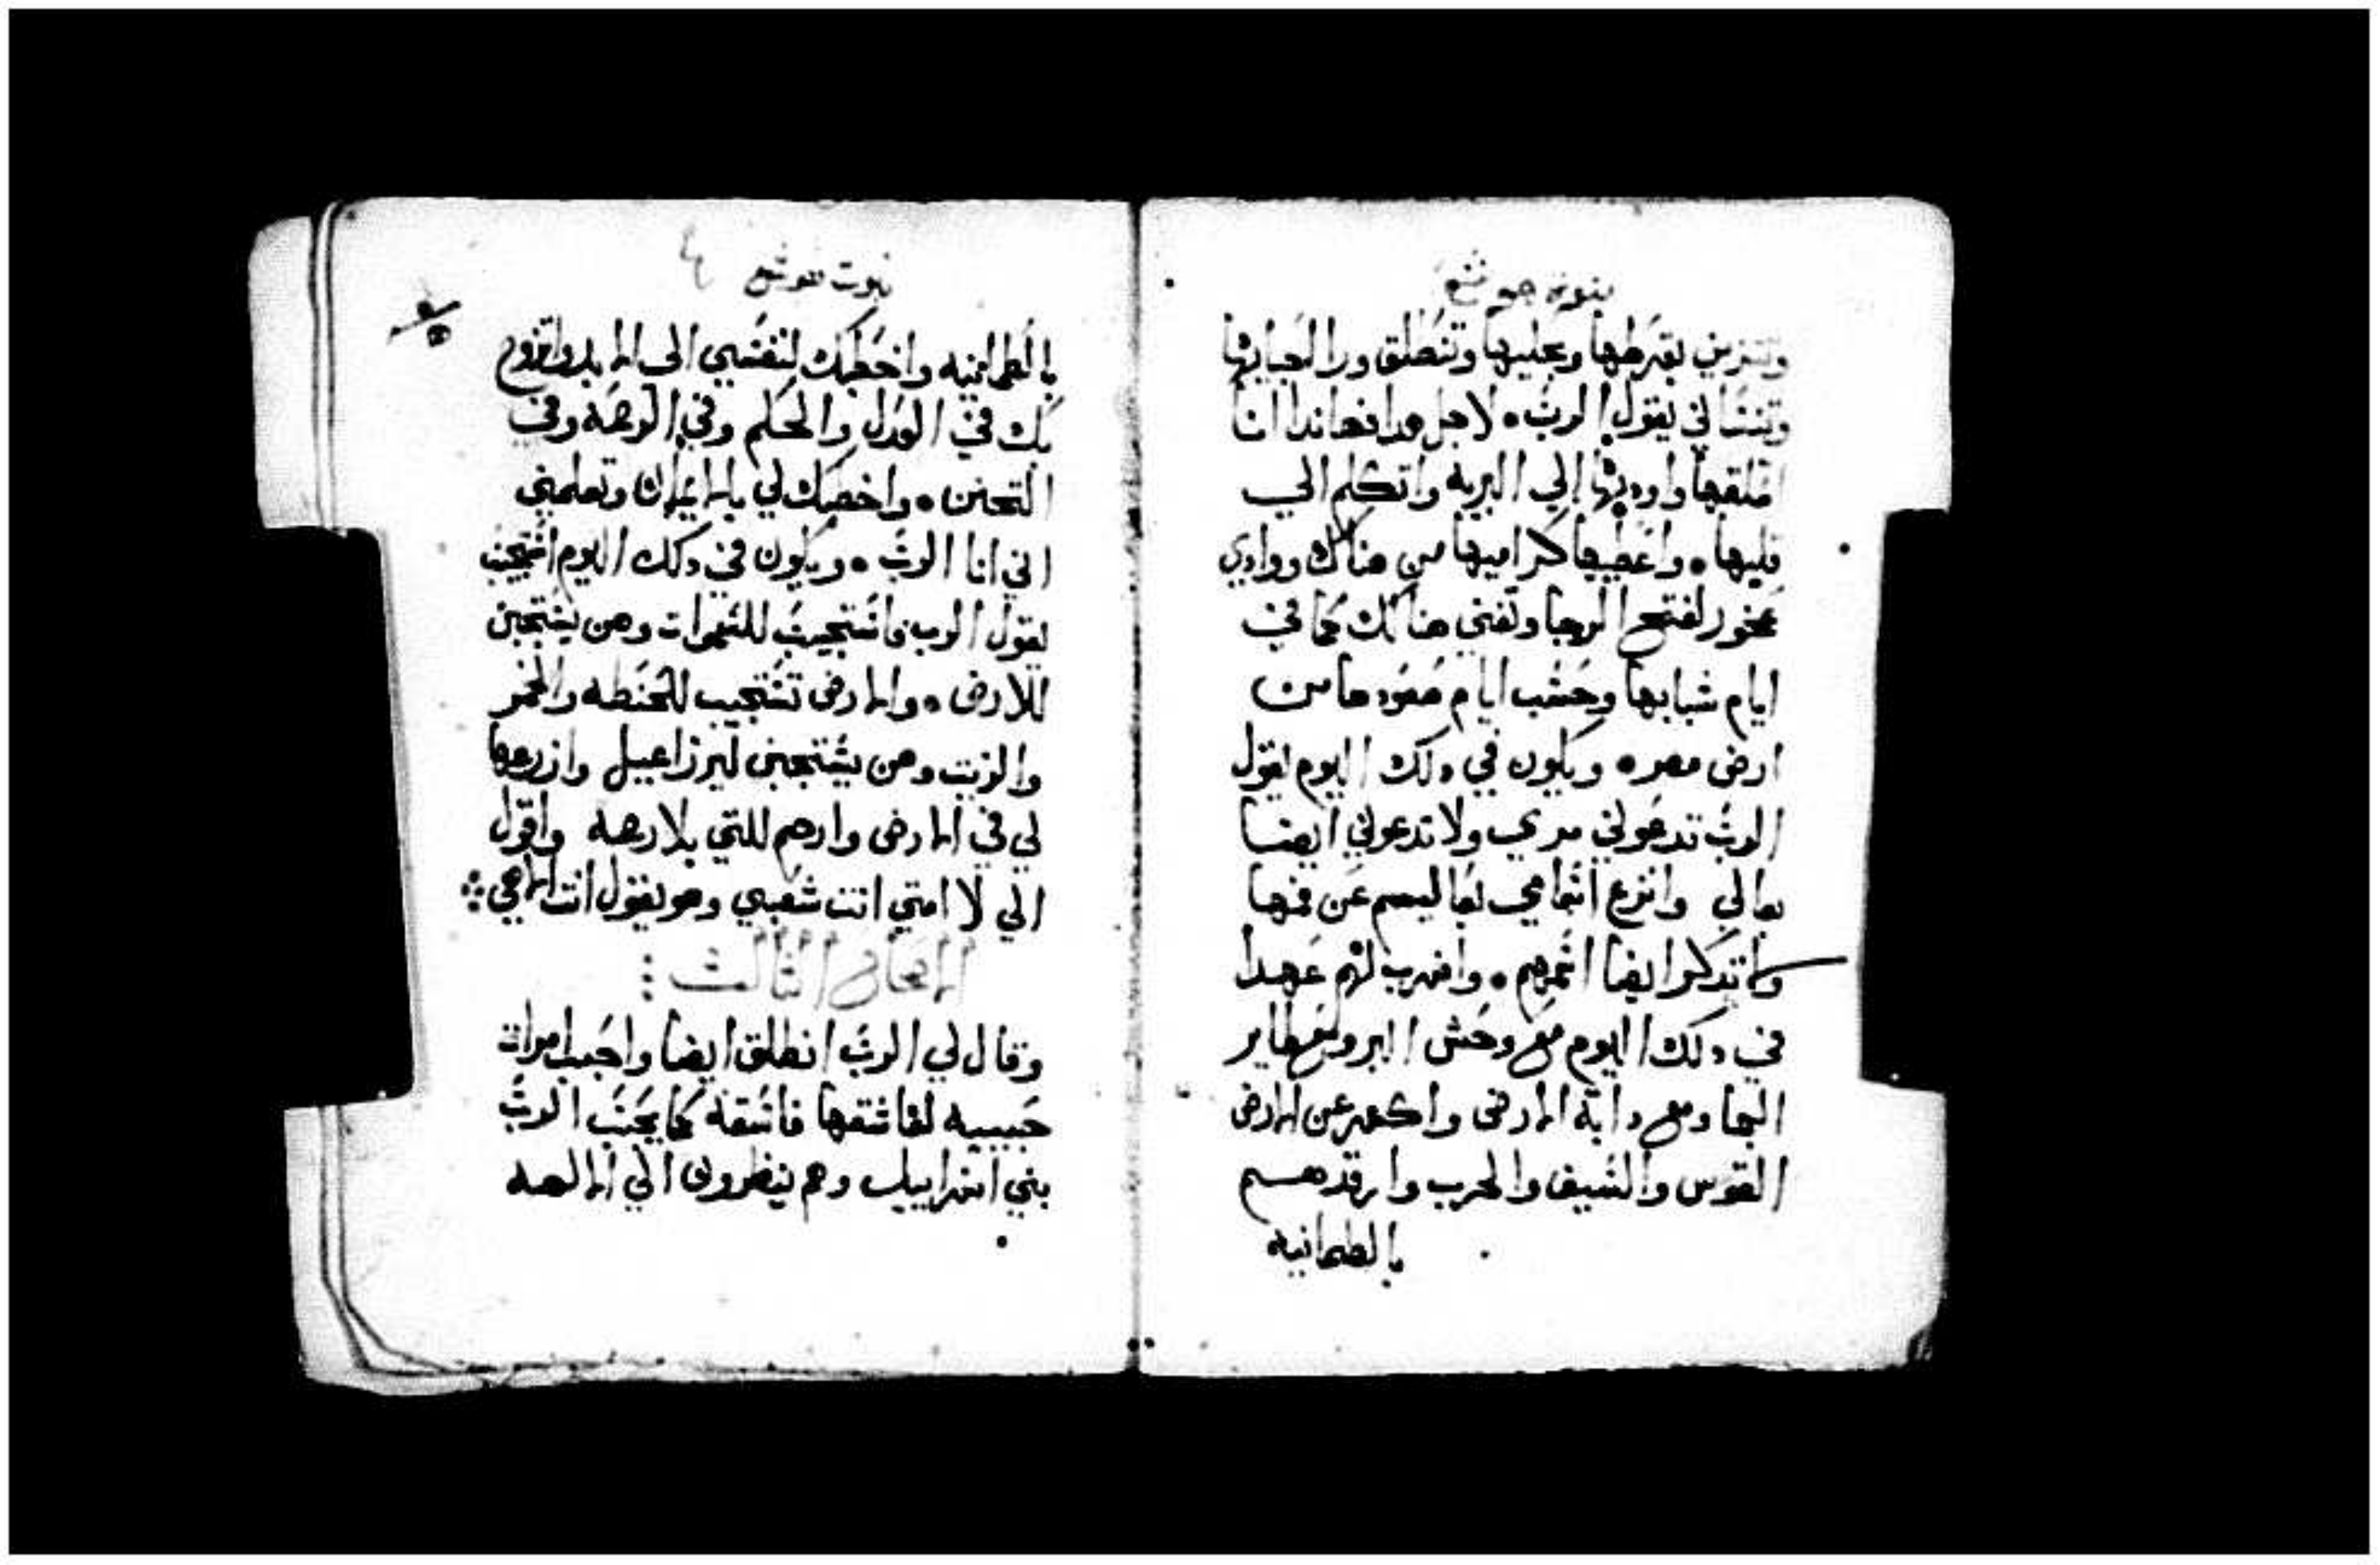 نبوة هوشع
وتتزين بقرطها وبحليها وتنطلق ورا احبابها
وتنساني يقول الرب • لاجل هدا فهاندا انا
اقلقها واوديها إلي البرية واتكلم الي
قلبها • واعطيها كراميها من هناك ووادي
عخور لفتح الرجا وتغني هنالك كما في
ايام شبابها وحسب ايام صعودها من
ارض مصر • ويكون في دلك اليوم يقول
الرب تدعوني مري ولا تدعوني ايضا
بعالي وانزع اسامي بعاليم عن فمها
ولا تدكر ايضا اسمهم • واضرب لهم عهدا
في دلك اليوم مع وحش البر ومع طاير
السما ومع دابة الارض واكسر عن الارض
القوس والسيف والحرب وارقدهم
بالطمانية
نبوت هوشع ٤
بالطمانيه واخطبك لنفسي الى الابد واتزوج
بك في العدل والحكم وفي الرحمه وفي
التحنن • واخطبك لي بالايمان وتعلمي
اني انا الرب • ويكون في دلك اليوم استجيب
يقول الرب فاستجيب للسموات وهن يستجبن
للارض • والارض تستجيب للحنطه والخمر
والزيت وهن يستجبن ليزراعيل وازرعها
لي في الارض وارحم للتي بلا رحمه واقول
الي لا امتي انت شعبي وهو يقول انت الاهي
الاصحاح الثالث
وقال لي الرب انطلق ايضا واحبب امراة
حبيبه لعاشقها فاسقه كما يحب الرب
بني اسراييل وهم ينظرون الي الالهه